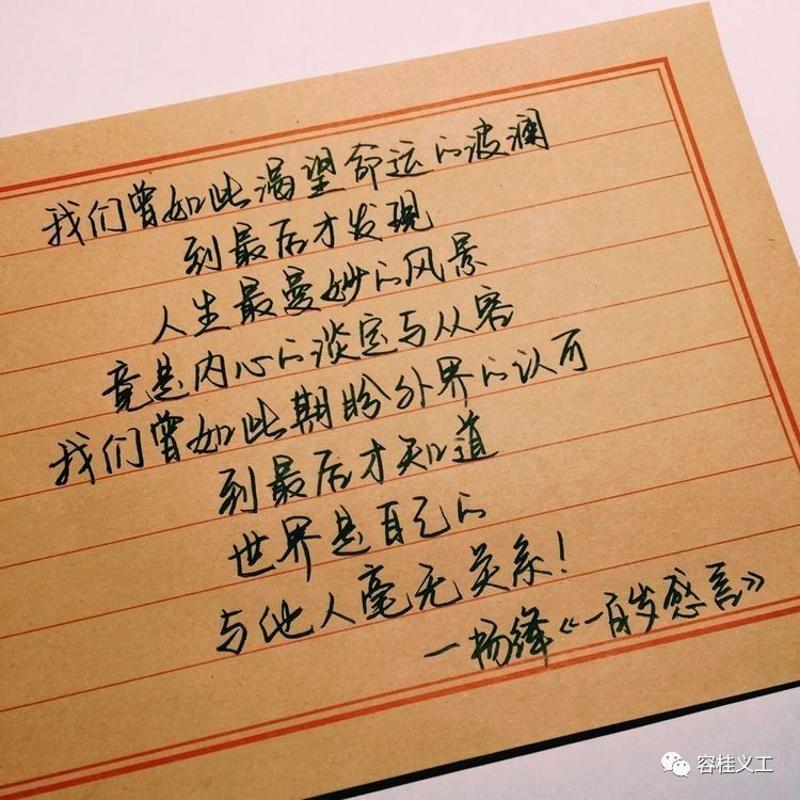 我们曾如此渴望命运的波澜
到最后才发现
人生最曼妙的风景
竟是内心的淡定与从容
我们曾如此期盼外界的认可
到最后才知道
世界是自己的
与他人毫无关系!
一杨绛《一百岁感言》
容桂义工